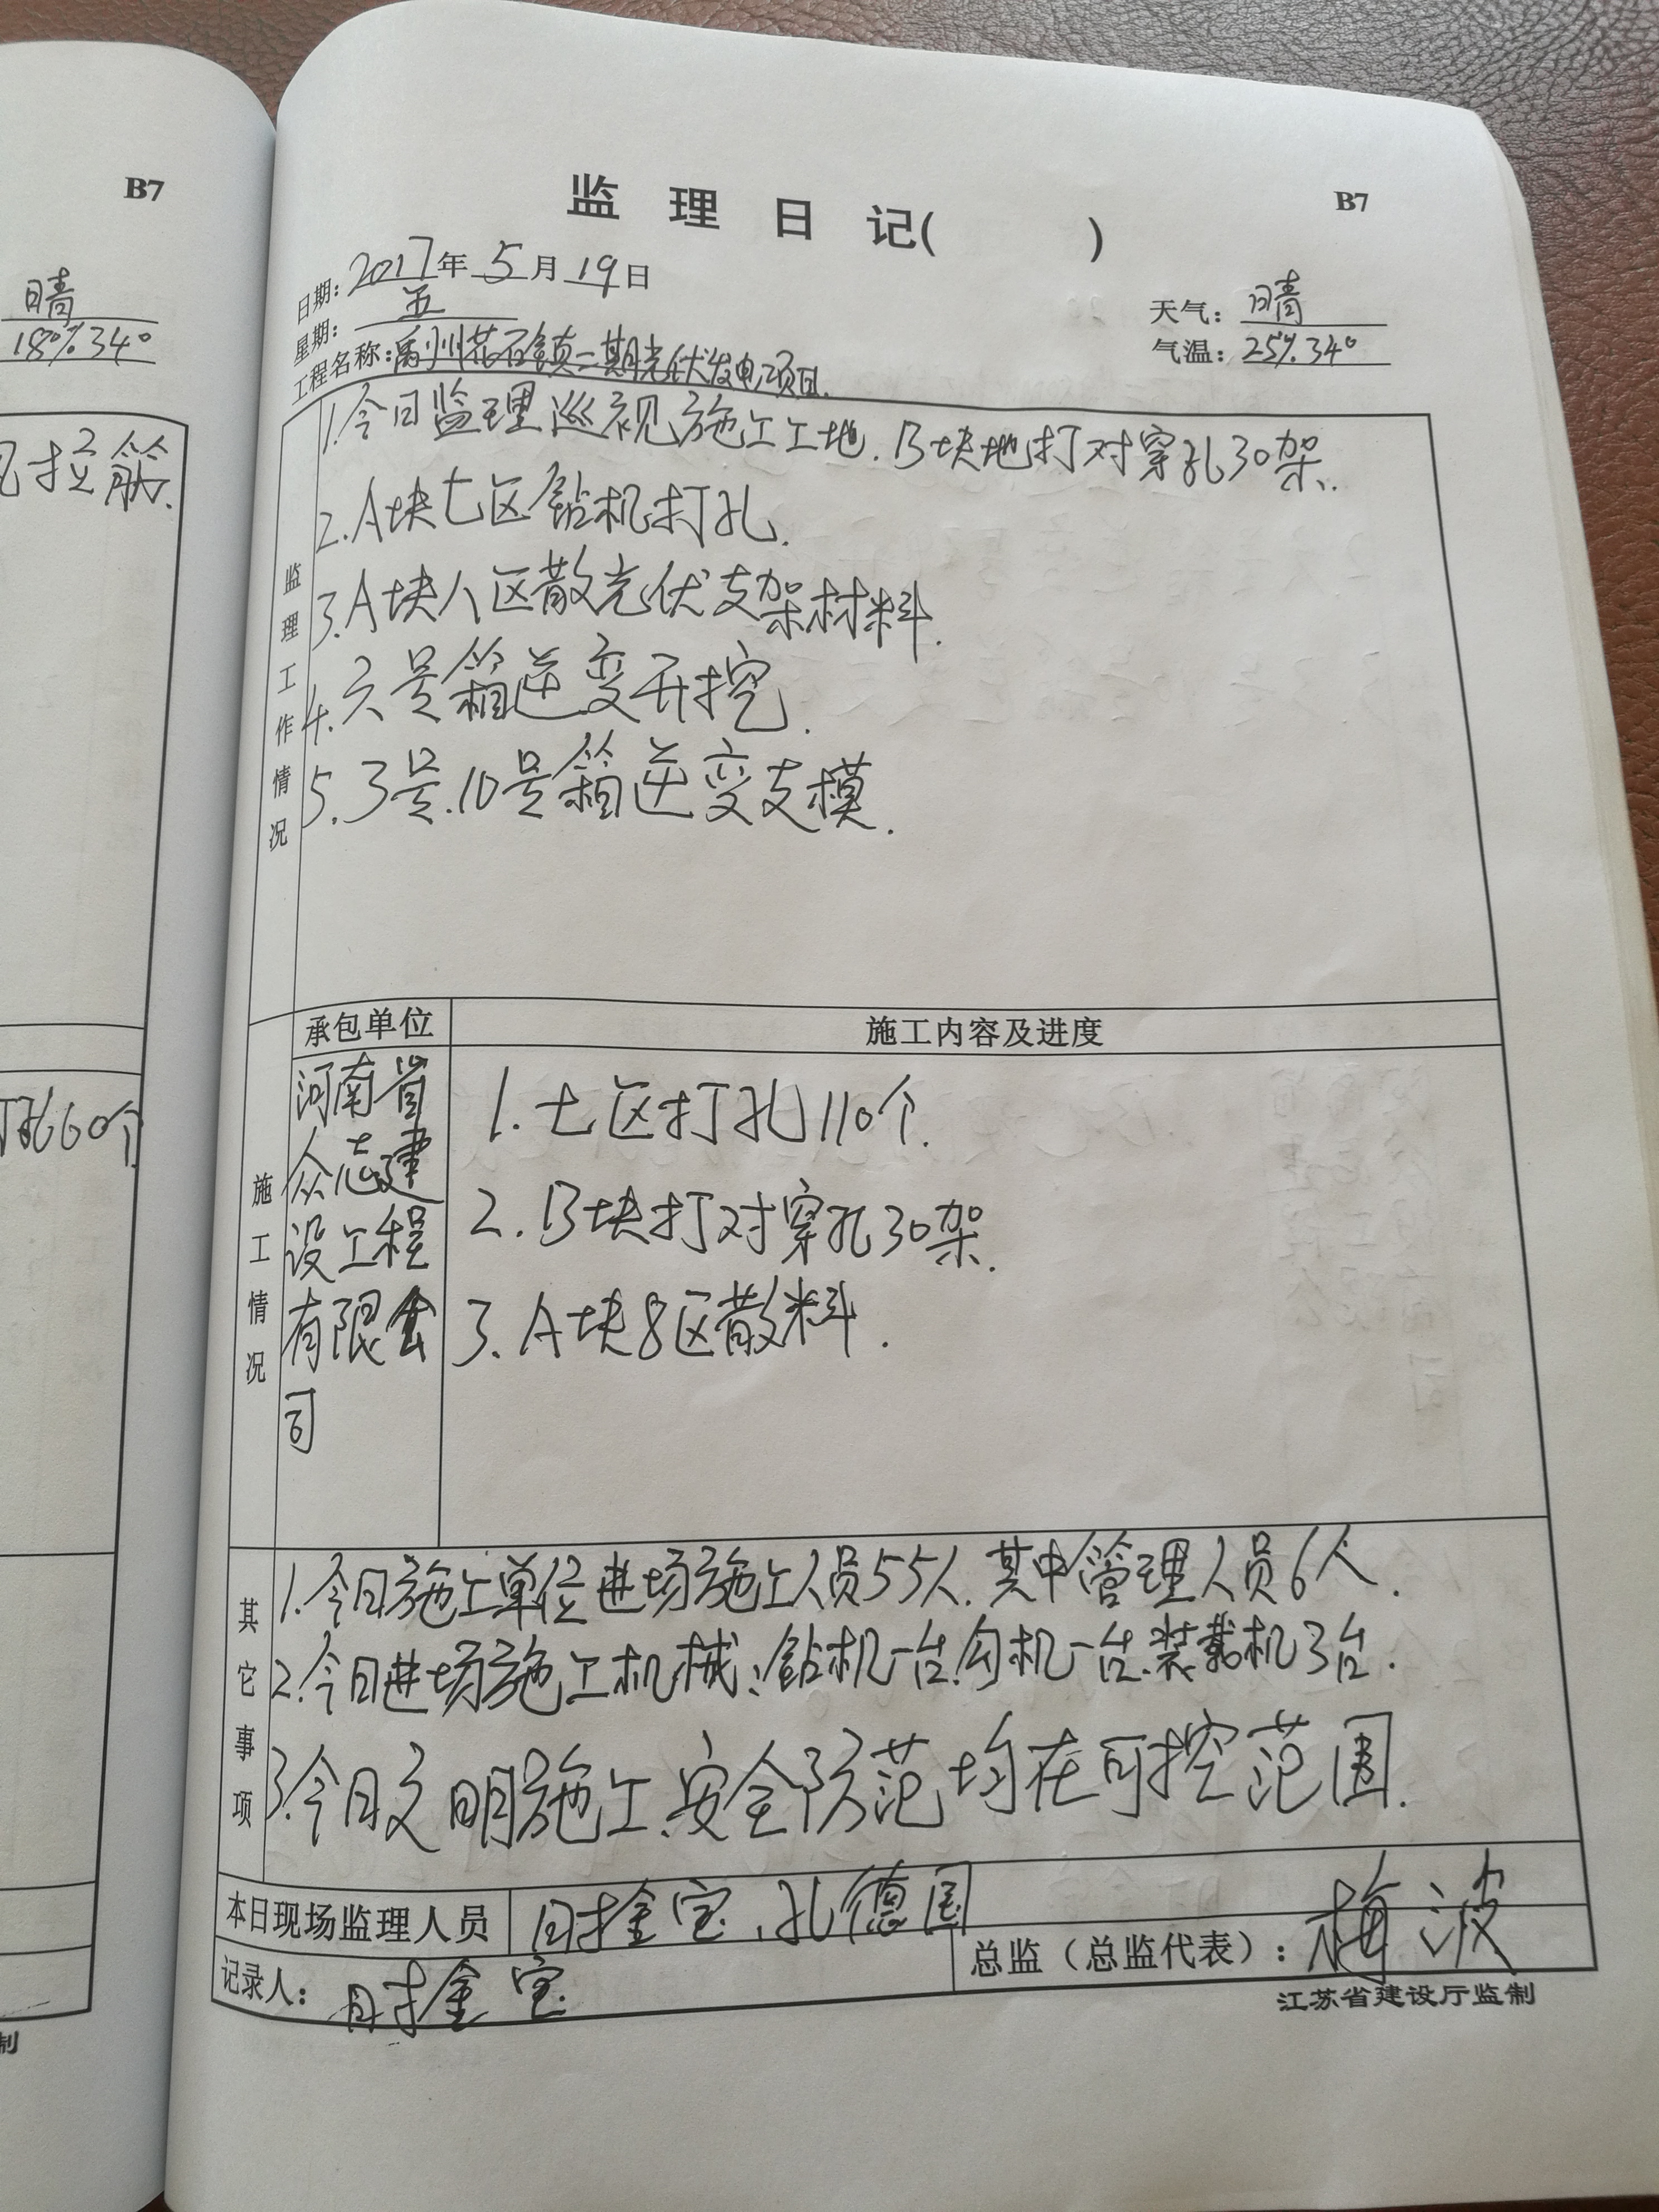 B7
晴
18%34°
拉筋.
孔60个
制
B7
监理日记( )
日期: 2017年5月19日
星期: 五
天气: 晴
气温: 25%34°
工程名称: 禹州花石镇二期光伏发电项目.
监理工作情况
1.今日监理巡视施工工地.B块地打对穿孔30架.
2.A块七区钻机打孔.
3.A块八区散光伏支架材料.
4.六号箱逆变开挖.
5.3号.10号箱逆变支模.
施工情况
承包单位
施工内容及进度
河南省
众志建
设工程
有限公
司
1.七区打孔110个.
2.B块打对穿孔30架.
3.A块8区散料.
其它事项
1.今日施工单位进场施工人员55人.其中管理人员6人.
2.今日进场施工机械:钻机一台.勾机一台.装载机3台.
3.今日文明施工.安全防范均在可控范围.
本日现场监理人员
金宝、孔德国
记录人:
金宝
总监（总监代表）: 梅波
江苏省建设厅监制